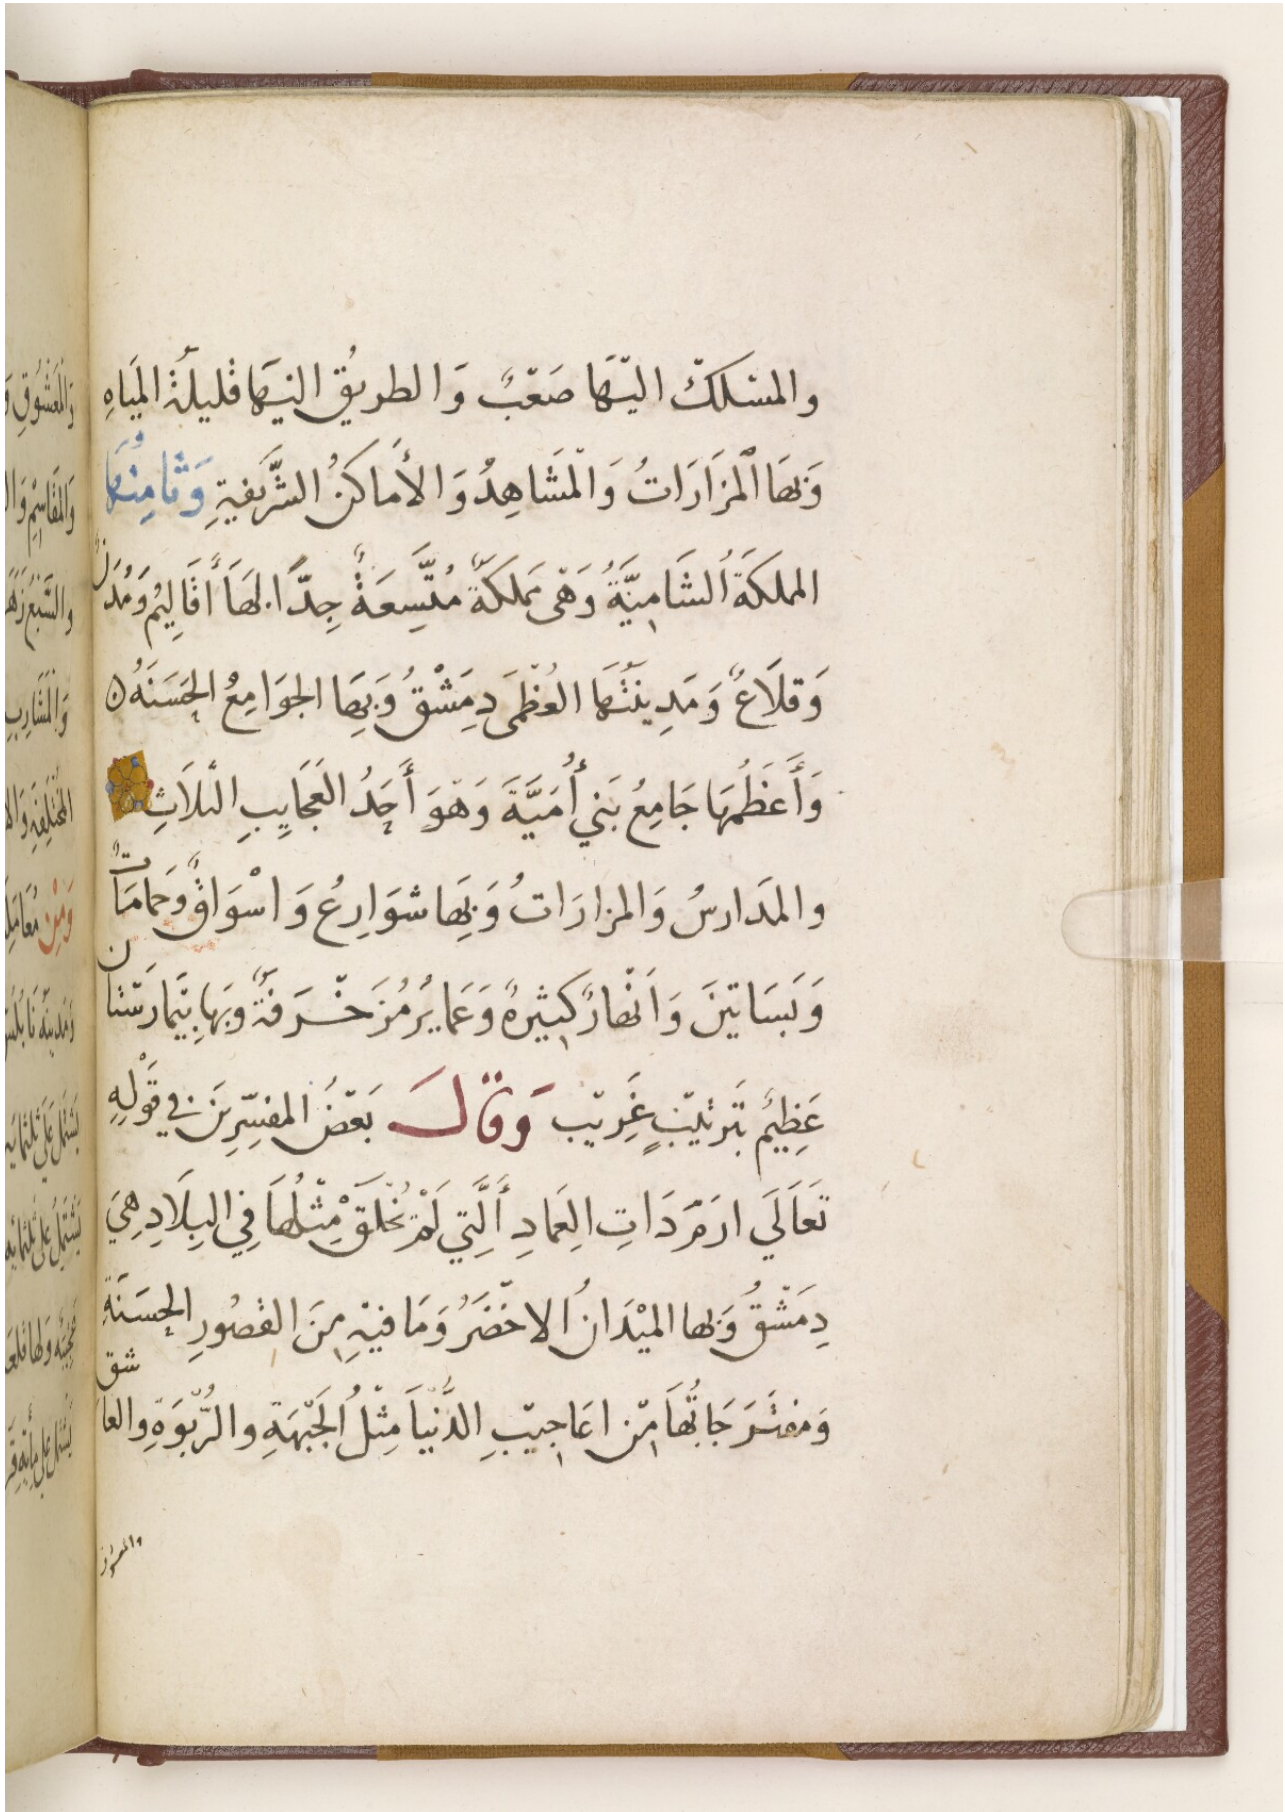 والمسلك اليها صَعْبٌ وَالطريق اليها قليلة المَياهِ
وَبهَا المزَارَاتُ وَالْمَشَاهِدُ وَالأَماكنُ الشَّرَيفةِ وَثامِنُهَا
المملكَةُ الشَامِيَّةُ وَهْىَ مَملكَةٌ مُتَّسِعَةٌ جِدًّا بهَا أَقَالِيمُ وَمُدُنٌ
وَقلَاعٌ وَمَدِينَتُهَا العُظْمَى دِمَشْقُ وَبِهَا الجوَامِعُ الحَسَنَهُ
وَأَعْظَمُهَا جَامِعُ بَني أُمَيَّةَ وَهْوَ أَحَدُ العَجَايِبِ الثلَاثِ
والمَدَارسُ وَالمزارَاتُ وَبِهَا شوَارِعُ وَاسْوَاقٌ وَحمامَاتٌ
وَبَسَاتينَ وَاَنْهَارٌ كبِثيرهٌ وَعَمايرُ مُزَخْرَفَةٌ وَبهَا بِيْمَارَسْتان
عَظِيْم بتَرتيْبٍ غَرِيْب وَقالَ بَعْضُ المفسِّرِينَ في قَوْلِهِ
تَعَالَي ارَمَ ذَاتِ العِمادِ أَلَّتِي لَمْ يُخْلَقْ مِثْلُهَا فِي البِلَادِ هِيَ
دِمَشْقُ وَبها الميْدَانُ الاخْضَرُ وَمَا فيْهِ مِنَ القصُورِ الحسَنَةِ
وَمفتَرَجَاتُهَا مِنْ اعَاجِيْبِ الدُّنْيَا مِثْلُ الجَبْهَةِ والرَّبْوَةِ والعاشق
والمعشوق
وَالْمَعْشُوقِ
وَالمقَاسِمِ
والسَّبْع
وَالْمَشَارِبِ
المخْتَلِفَةِ
وَمِنْ مُعَامِلَ
وَمَديْنَه نَابُلس
يَشتَمِلُ عَلَى ثلثمايه
يَشْتَمِلُ عَلَى ثلثمائه
يَشتملُ عَلَى مائِه